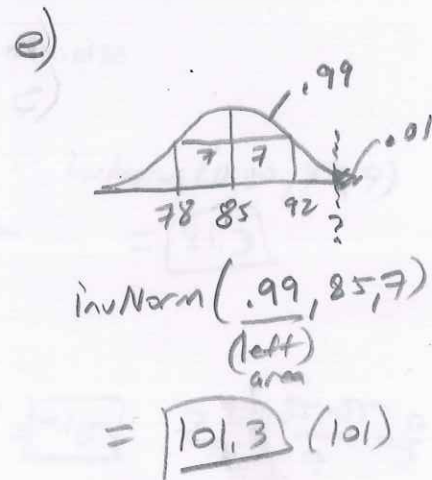 e)
.99
.01
7 7
78 85 92 ?
invNorm(.99, 85, 7)
(left)
area
= 101.3 (101)